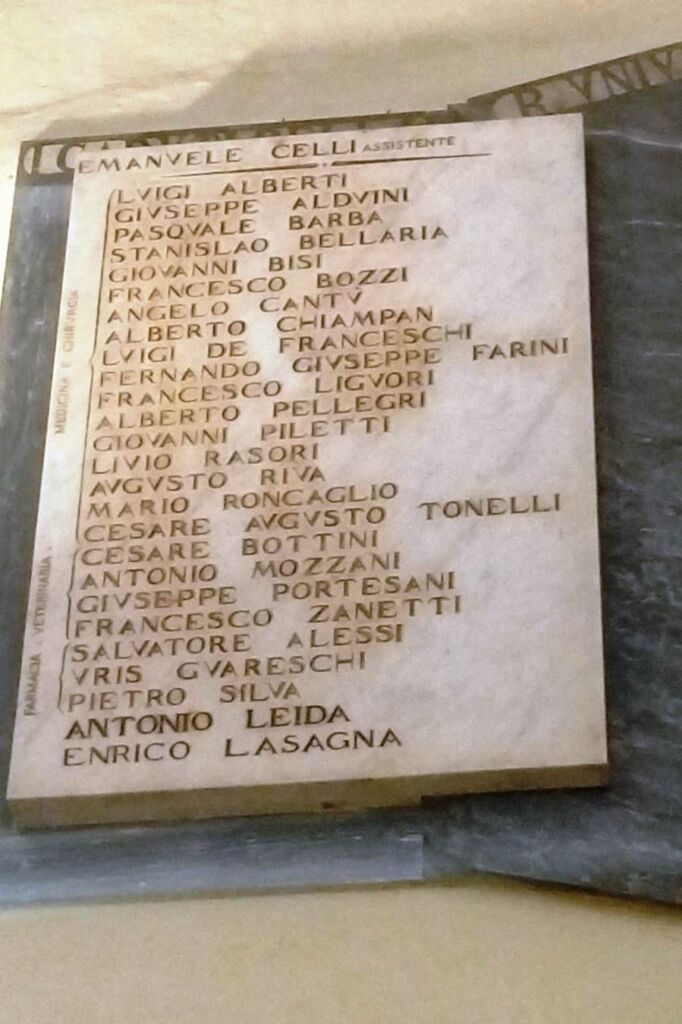 EMANVELE CELLI ASSISTENTE
MEDICINA E CHIRVRGIA
LVIGI ALBERTI
GIVSEPPE ALDVINI
PASQVALE BARBA
STANISLAO BELLARIA
GIOVANNI BISI
FRANCESCO BOZZI
ANGELO CANTV
ALBERTO CHIAMPAN
LVIGI DE FRANCESCHI
FERNANDO GIVSEPPE FARINI
FRANCESCO LIGVORI
ALBERTO PELLEGRI
GIOVANNI PILETTI
LIVIO RASORI
AVGVSTO RIVA
MARIO RONCAGLIO
CESARE AVGVSTO TONELLI
VETERINARIA
CESARE BOTTINI
ANTONIO MOZZANI
GIVSEPPE PORTESANI
FRANCESCO ZANETTI
FARMACIA
SALVATORE ALESSI
VRIS GVARESCHI
PIETRO SILVA
ANTONIO LEIDA
ENRICO LASAGNA